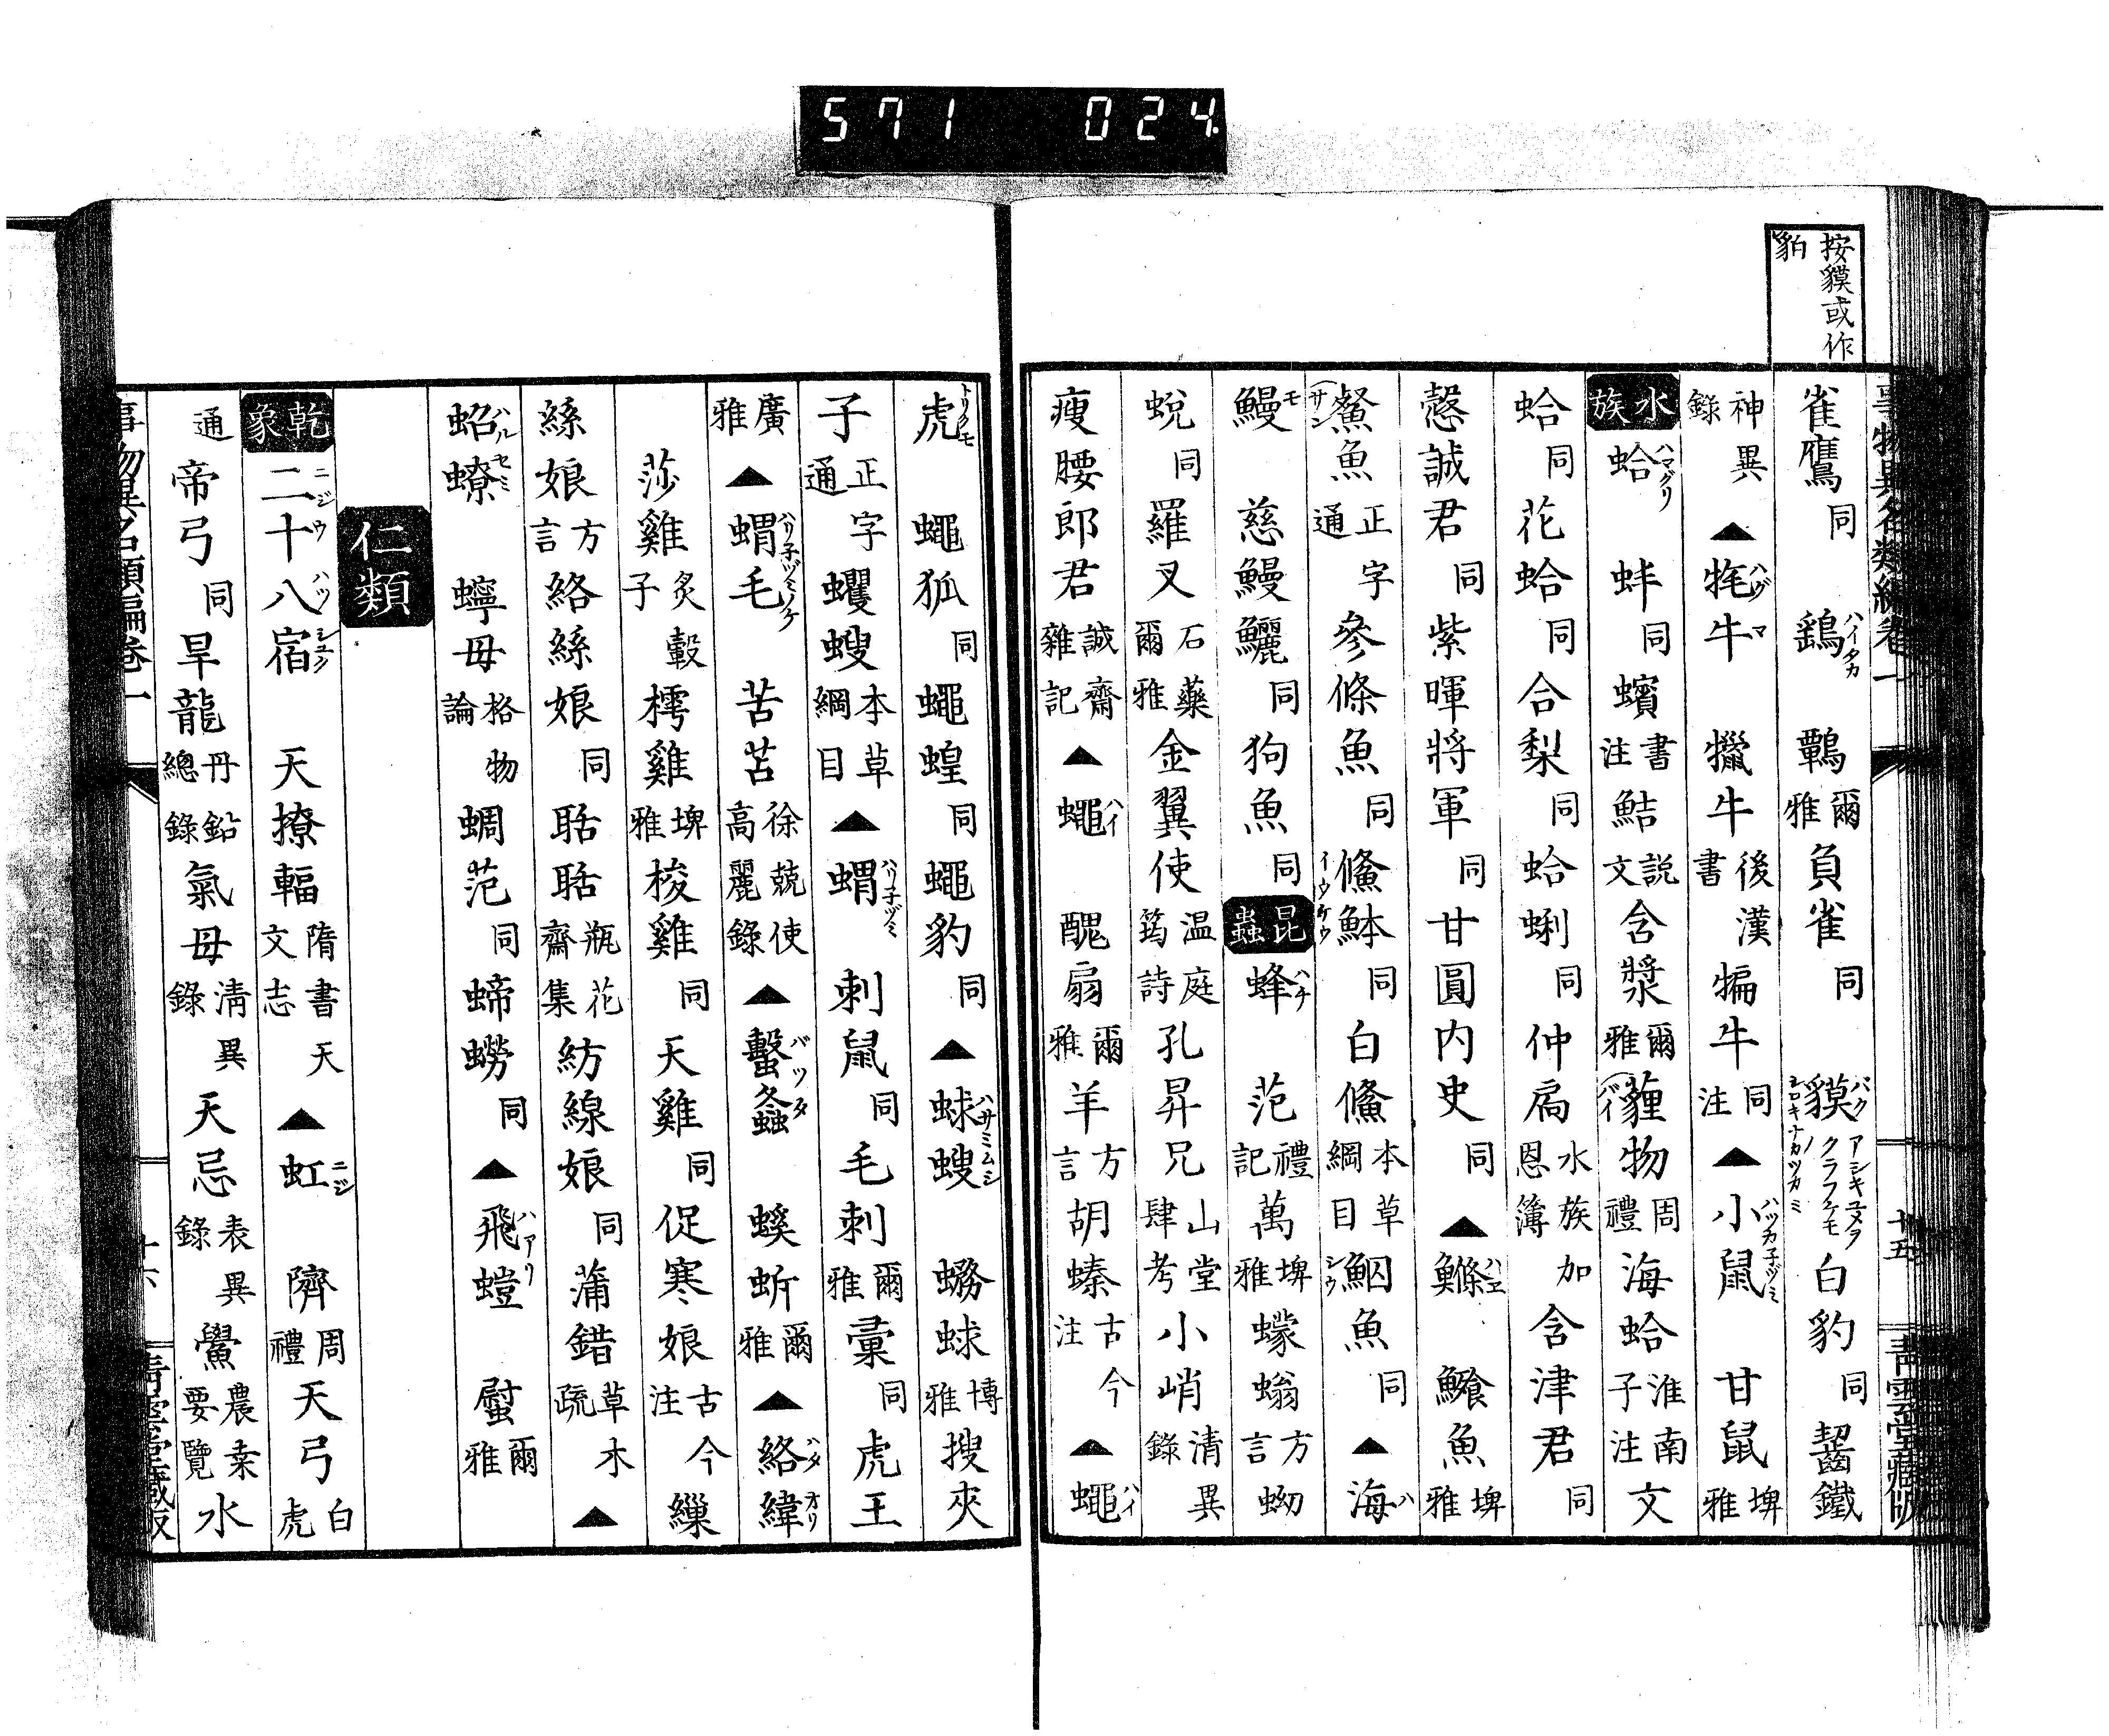 571 024.
按貘或作
豹
事物異名類編卷一 十五 靑雲堂藏版
雀鷹同 鷂ハイタカ 鷣爾雅負雀同 貘バク シロキナカツカミ アシキユメヲクラフケモノ 白豹同齧鐵
神異錄▲牦牛ハグマ 犣牛後漢書犏牛同注▲小鼠ハツカ子ヅミ 甘鼠埤雅
水族 蛤ハマグリ 蚌同蠙書注鮚説文含漿爾雅貍物(バイ周禮海蛤淮南子注文
蛤同花蛤同合梨同蛤蜊同仲扄水族加恩簿含津君同
慤誠君同紫暉將軍同甘圓内史同▲鰷ハエ 鱌魚埤雅
鮝魚(サン正字通參條魚同鯈䱁イウケウ同白鯈本草綱目鮂魚シウ同▲海ハ
鰻モ 慈鰻鱺同狗魚同 昆蟲 蜂ハチ 范禮記萬埤雅蠓螉方言蚴
蛻同羅叉石藥爾雅金翼使温庭筠詩孔昇兄山堂肆考小峭清異錄
痩腰郎君誠齋雜記▲蠅ハイ 醜扇爾雅羊方言胡螓古今注▲蠅ハイ
虎トリクモ 蠅狐同蠅蝗同蠅豹同▲蛷螋ハサミムシ 蟧蛷博雅搜夾
子正字通蠼螋本草綱目▲蝟ハリ子ヅミ 刺鼠同毛刺爾雅彙同虎王
廣雅▲蝟毛ハリ子ヅミノケ 苦苫徐兢使高麗錄▲蟿螽バツタ 螇蚸爾雅▲絡緯ハタオリ
莎雞炙轂子樗雞埤雅梭雞同天雞同促寒娘古今注繅
絲娘方言絡絲娘同聒聒瓶花齋集紡線娘同蒲錯草木疏▲
蛁蟟ハルセミ 蟀母格物論蜩范同蝭蟧同▲飛螘ハアリ 螱爾雅
仁類
乾象 二十八宿ニジウハツシユク 天撩輻隋書天文志▲虹ニジ 隮周禮天弓白虎
通帝弓同旱龍丹鉛總錄氣母清異錄天忌表異錄鱟農桑要覽水
事物異名類編卷一 十六 靑雲堂藏版